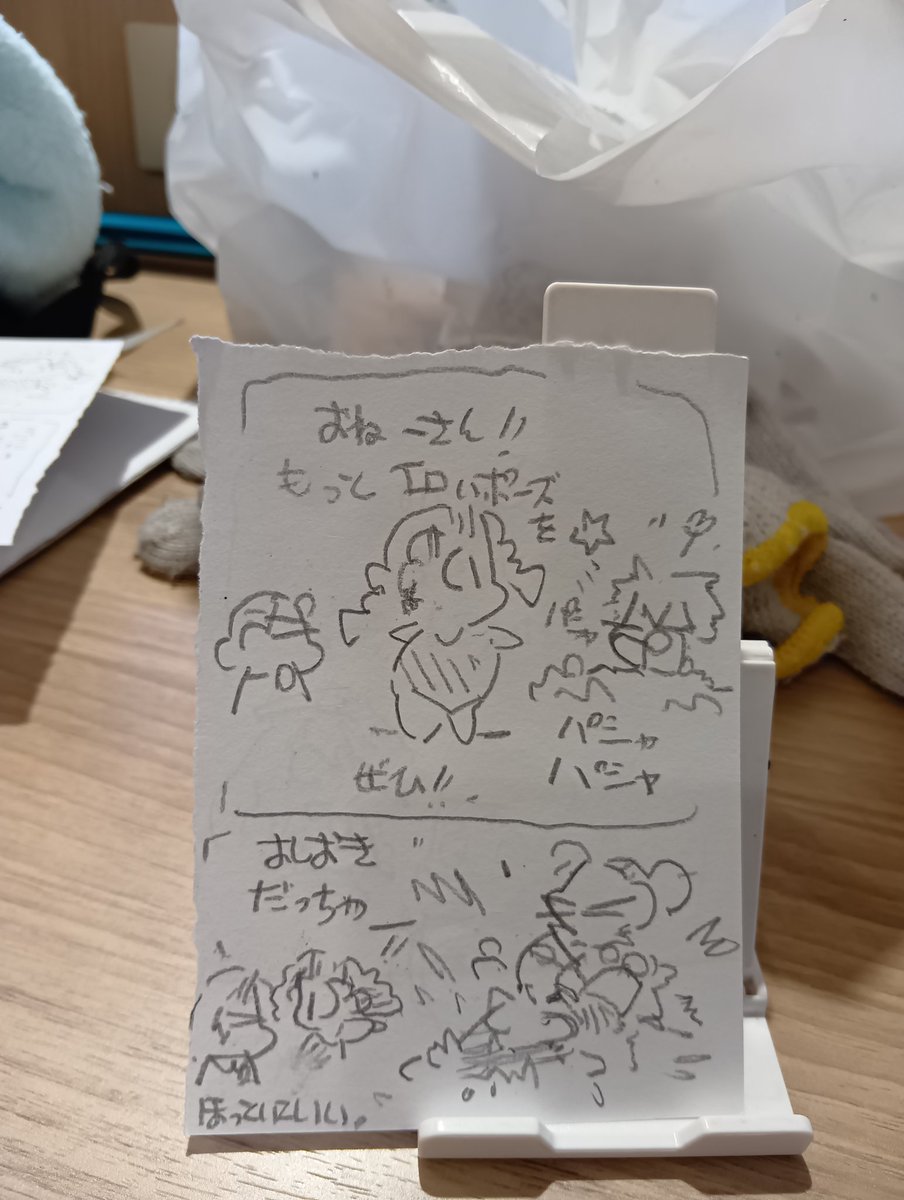 おねーさん!!
もっとエロいポーズ
を
パシャ
パシャ
パシャ
ぜひ!!
おしおき
だっちゃ
ほっといていい。